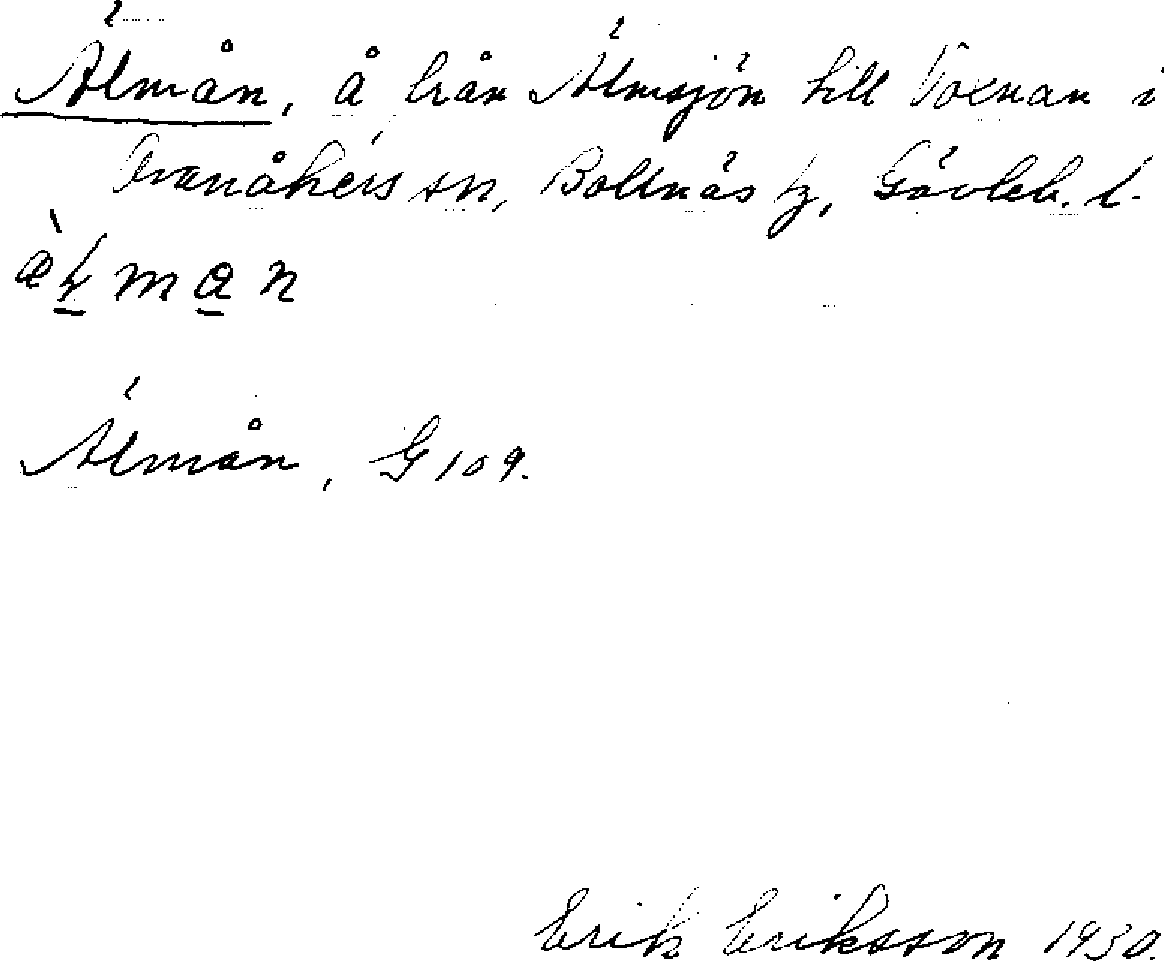 Älmån, å från Älmsjön till Voxnan i
Ovanåkers sn, Bollnäs tg, Gävleb. l.
Älmån, G 109.
Erik Eriksson 1930.